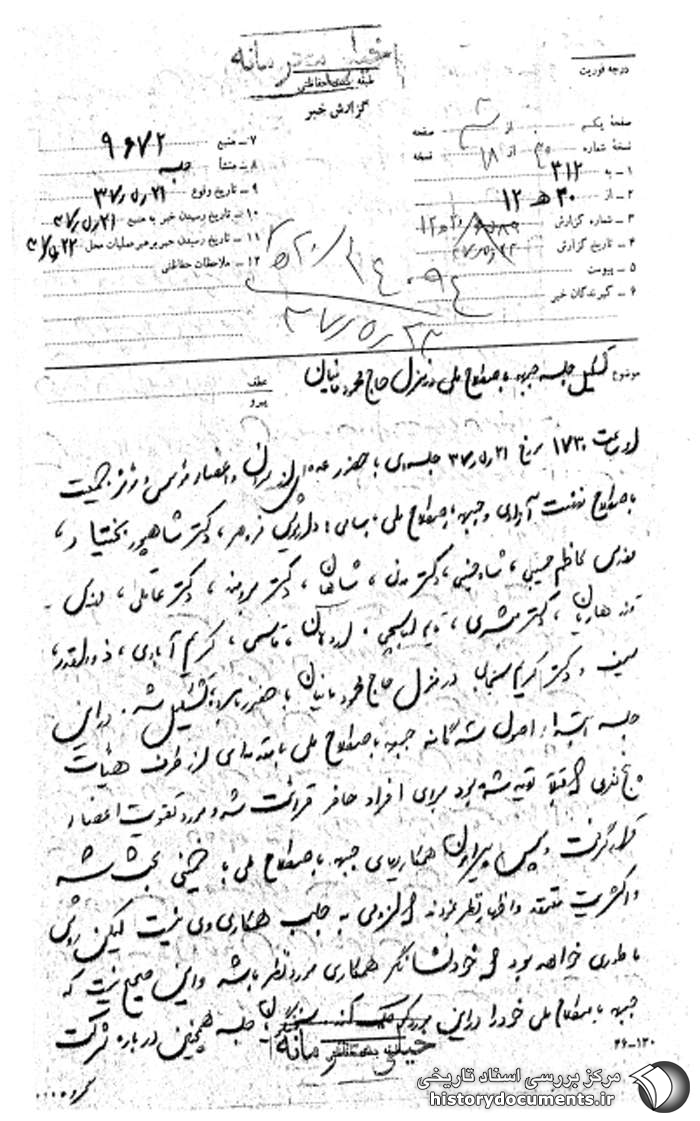 خیلی محرمانه
طبقه بندی حفاظتی
گزارش خبر
درجه فوریت
صفحه یکم از صفحه
نسخه شماره از ۱۸ نسخه
۱ ـ به ۳۱۲
۲ ـ از ۲۰ هـ ۱۲
۳ ـ شماره گزارش
۴ ـ تاریخ گزارش
۵ ـ پیوست
۶ ـ گیرندگان خبر
۷ ـ منبع ۹۶۷۲
۸ ـ منشأ جلسه
۹ ـ تاریخ وقوع ۳۷/۵/۲۱
۱۰ ـ تاریخ رسیدن خبر به منبع ۳۷/۵/۲۱
۱۱ ـ تاریخ رسیدن خبر به رهبر عملیات محل ۳۷/۵/۲۲
۱۲ ـ ملاحظات حفاظتی
۳۷/۵/۲۳
موضوع تشکیل جلسه جبهه باصطلاح ملی در منزل حاج محمود مانیان
عطف
پیرو
از ساعت ۱۷۳۰ مورخ ۳۷/۵/۲۱ جلسه‌ای با حضور عده‌ای از رهبران و اعضاء مؤسس و مؤثر جمعیت
باصطلاح نهضت آزادی و جبهه باصطلاح ملی باسامی: داریوش فروهر، دکتر شاهپور بختیار،
مهندس کاظم حسیبی، شاه‌حسینی، دکتر مدنی، شایان، دکتر برومند، دکتر عاملی، مهندس
دکتر مبشری، قاسمی، کریم آبادی، ذوالقدر،
و دکتر کریم سنجابی در منزل حاج محمود مانیان با حضور نامبرده تشکیل شد. در این
جلسه ابتدا اصول سه گانه جبهه باصطلاح ملی با مقدمه‌ای از طرف هیأت
پنج نفری قبلاً تهیه شده بود برای افراد حاضر قرائت شد و مورد تصویب اعضاء
قرار گرفت و سپس پیرامون همکاریهای جبهه باصطلاح ملی با خمینی بحث شد
و اکثریت معتقد و اظهار نظر نمودند که لزومی به جلب همکاری وی نیست لیکن روش
ما طوری خواهد بود که خودنشانگر همکاری مورد نظر باشد و این صحیح نیست که
جبهه باصطلاح ملی خود را در این مورد کوچک کند. جلسه همچنین درباره شرکت
خیلی محرمانه
طبقه بندی حفاظتی
۴۶-۱۲۰
مرکز بررسی اسناد تاریخی
historydocuments.ir